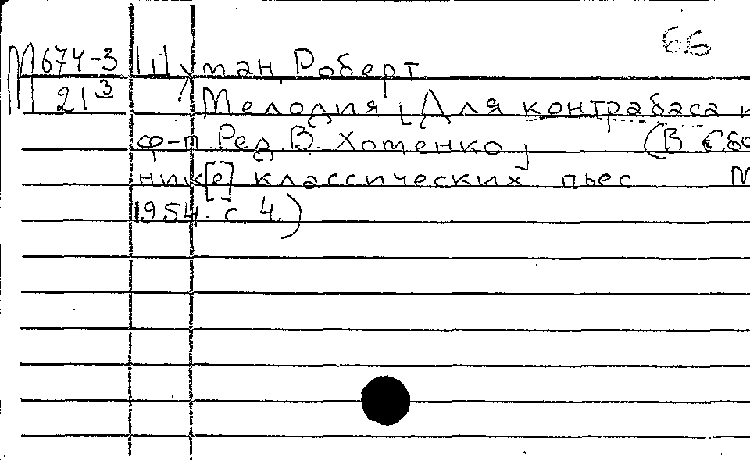 66
М 674-3 Шуман, Роберт
21³ Мелодия [Для контрабаса и
ф-п. Ред. В. Хоменко] (В Сбо
ник[е] классических пьес М
1954. с 4.)